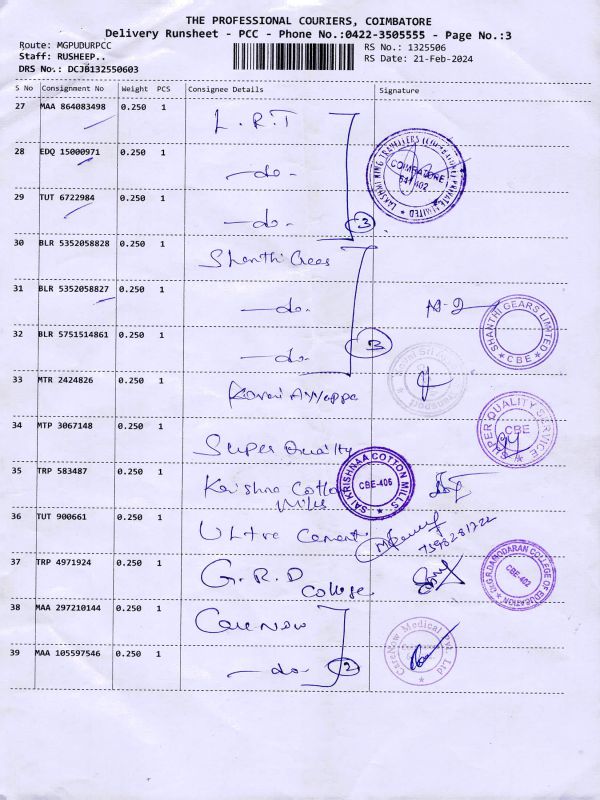 THE PROFESSIONAL COURIERS, COIMBATORE
Delivery Runsheet - PCC - Phone No.:0422-3505555 - Page No.:3
Route: MGPUDURPCC
RS No.: 1325506
Staff: RUSHEEP..
RS Date: 21-Feb-2024
DRS No.: DCJB132550603
S No Consignment No Weight PCS Consignee Details Signature
27 MAA 864083498 0.250 1 L.R.T
28 EDQ 15000971 0.250 1 -do-
LAKSHMI RING TRAVELLERS (COIMBATORE) PRIVATE LIMITED
COIMBATORE
641 402
29 TUT 6722984 0.250 1 -do- 3
30 BLR 5352058828 0.250 1 Shanthi Gears
31 BLR 5352058827 0.250 1 -do-
SHANTHI GEARS LIMITED
CBE
32 BLR 5751514861 0.250 1 -do- 3
33 MTR 2424826 0.250 1 Kovai Ayyappa
34 MTP 3067148 0.250 1 Super Quality
SUPER QUALITY SERVICE
CBE
35 TRP 583487 0.250 1 Krishna Cotton
Mills
SAI KRISHNAA COTTON MILLS
CBE-406
36 TUT 900661 0.250 1 Ultra Cement
7598281722
37 TRP 4971924 0.250 1 G.R.D College
Dr.G.R.DAMODARAN COLLEGE OF EDUCATION
CBE-402
38 MAA 297210144 0.250 1 CareNow
39 MAA 105597546 0.250 1 -do- 2
CareNow Medical Pvt. Ltd